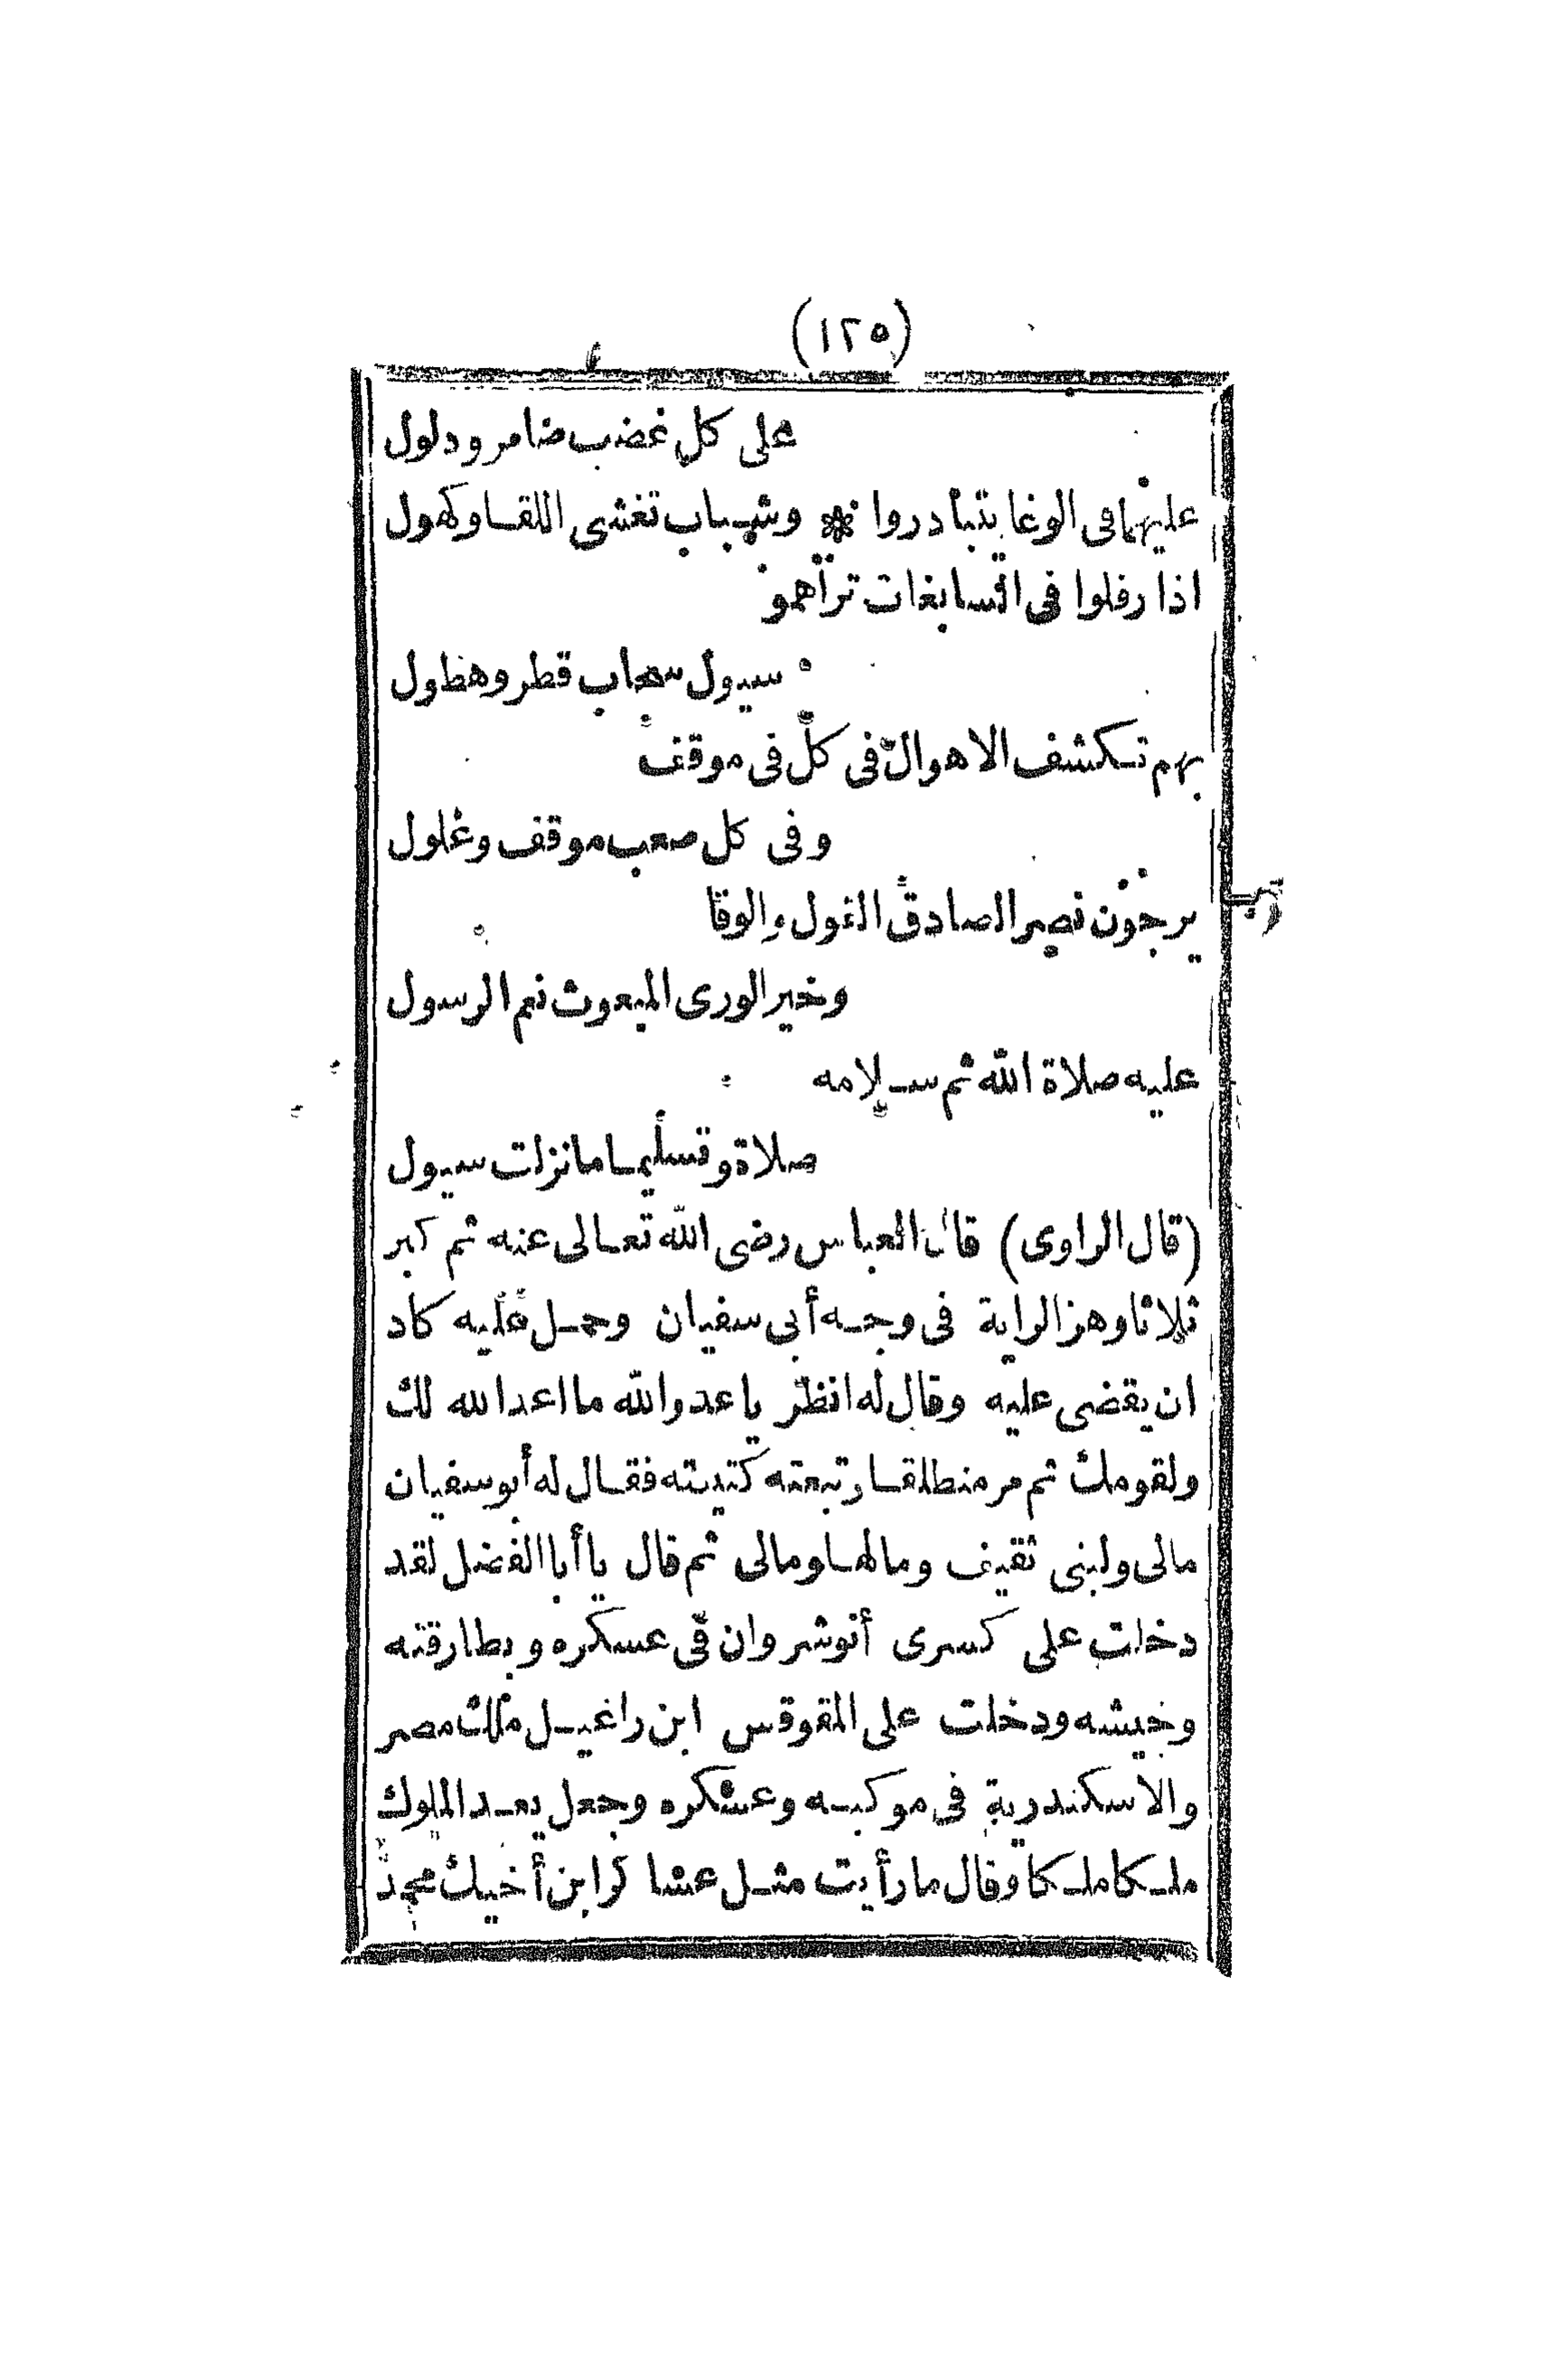 (١٢٥)
على كل غضب ضامر ودلول
عليهما فى الوغا يتبادروا * وشباب تغشى اللقا وكهول
اذا رفلوا فى السابغات تراهمو
سيول سحاب قطر وهطول
بهم تكشف الاهوال فى كل فى موقف
وفى كل صعب موقف وغلول
يرجون نصير الصادق القول والوفا
وخير الورى المبعوث نعم الرسول
عليه صلاة الله ثم سلامه
صلاة وتسليما ما نزلت سيول
(قال الراوى) قال العباس رضى الله تعالى عنه ثم كبر
ثلاثا وهز الراية فى وجه أبى سفيان وحمل عليه كاد
ان يقضى عليه وقال له انظر يا عدو الله ما اعد الله لك
ولقومك ثم مر منطلقا وتبعته كتيبته فقال له أبو سفيان
مالى ولبنى ثقيف وما لها ومالى ثم قال يا أبا الفضل لقد
دخلت على كسرى أنوشر وان فى عسكره وبطارقته
وجيشه ودخلت على المقوقس ابن راغيل ملك مصر
والاسكندرية فى موكبه وعسكره وجعل يعد الملوك
ملكا ملكا وقال ما رأيت مثل عساكر ابن أخيك محمد